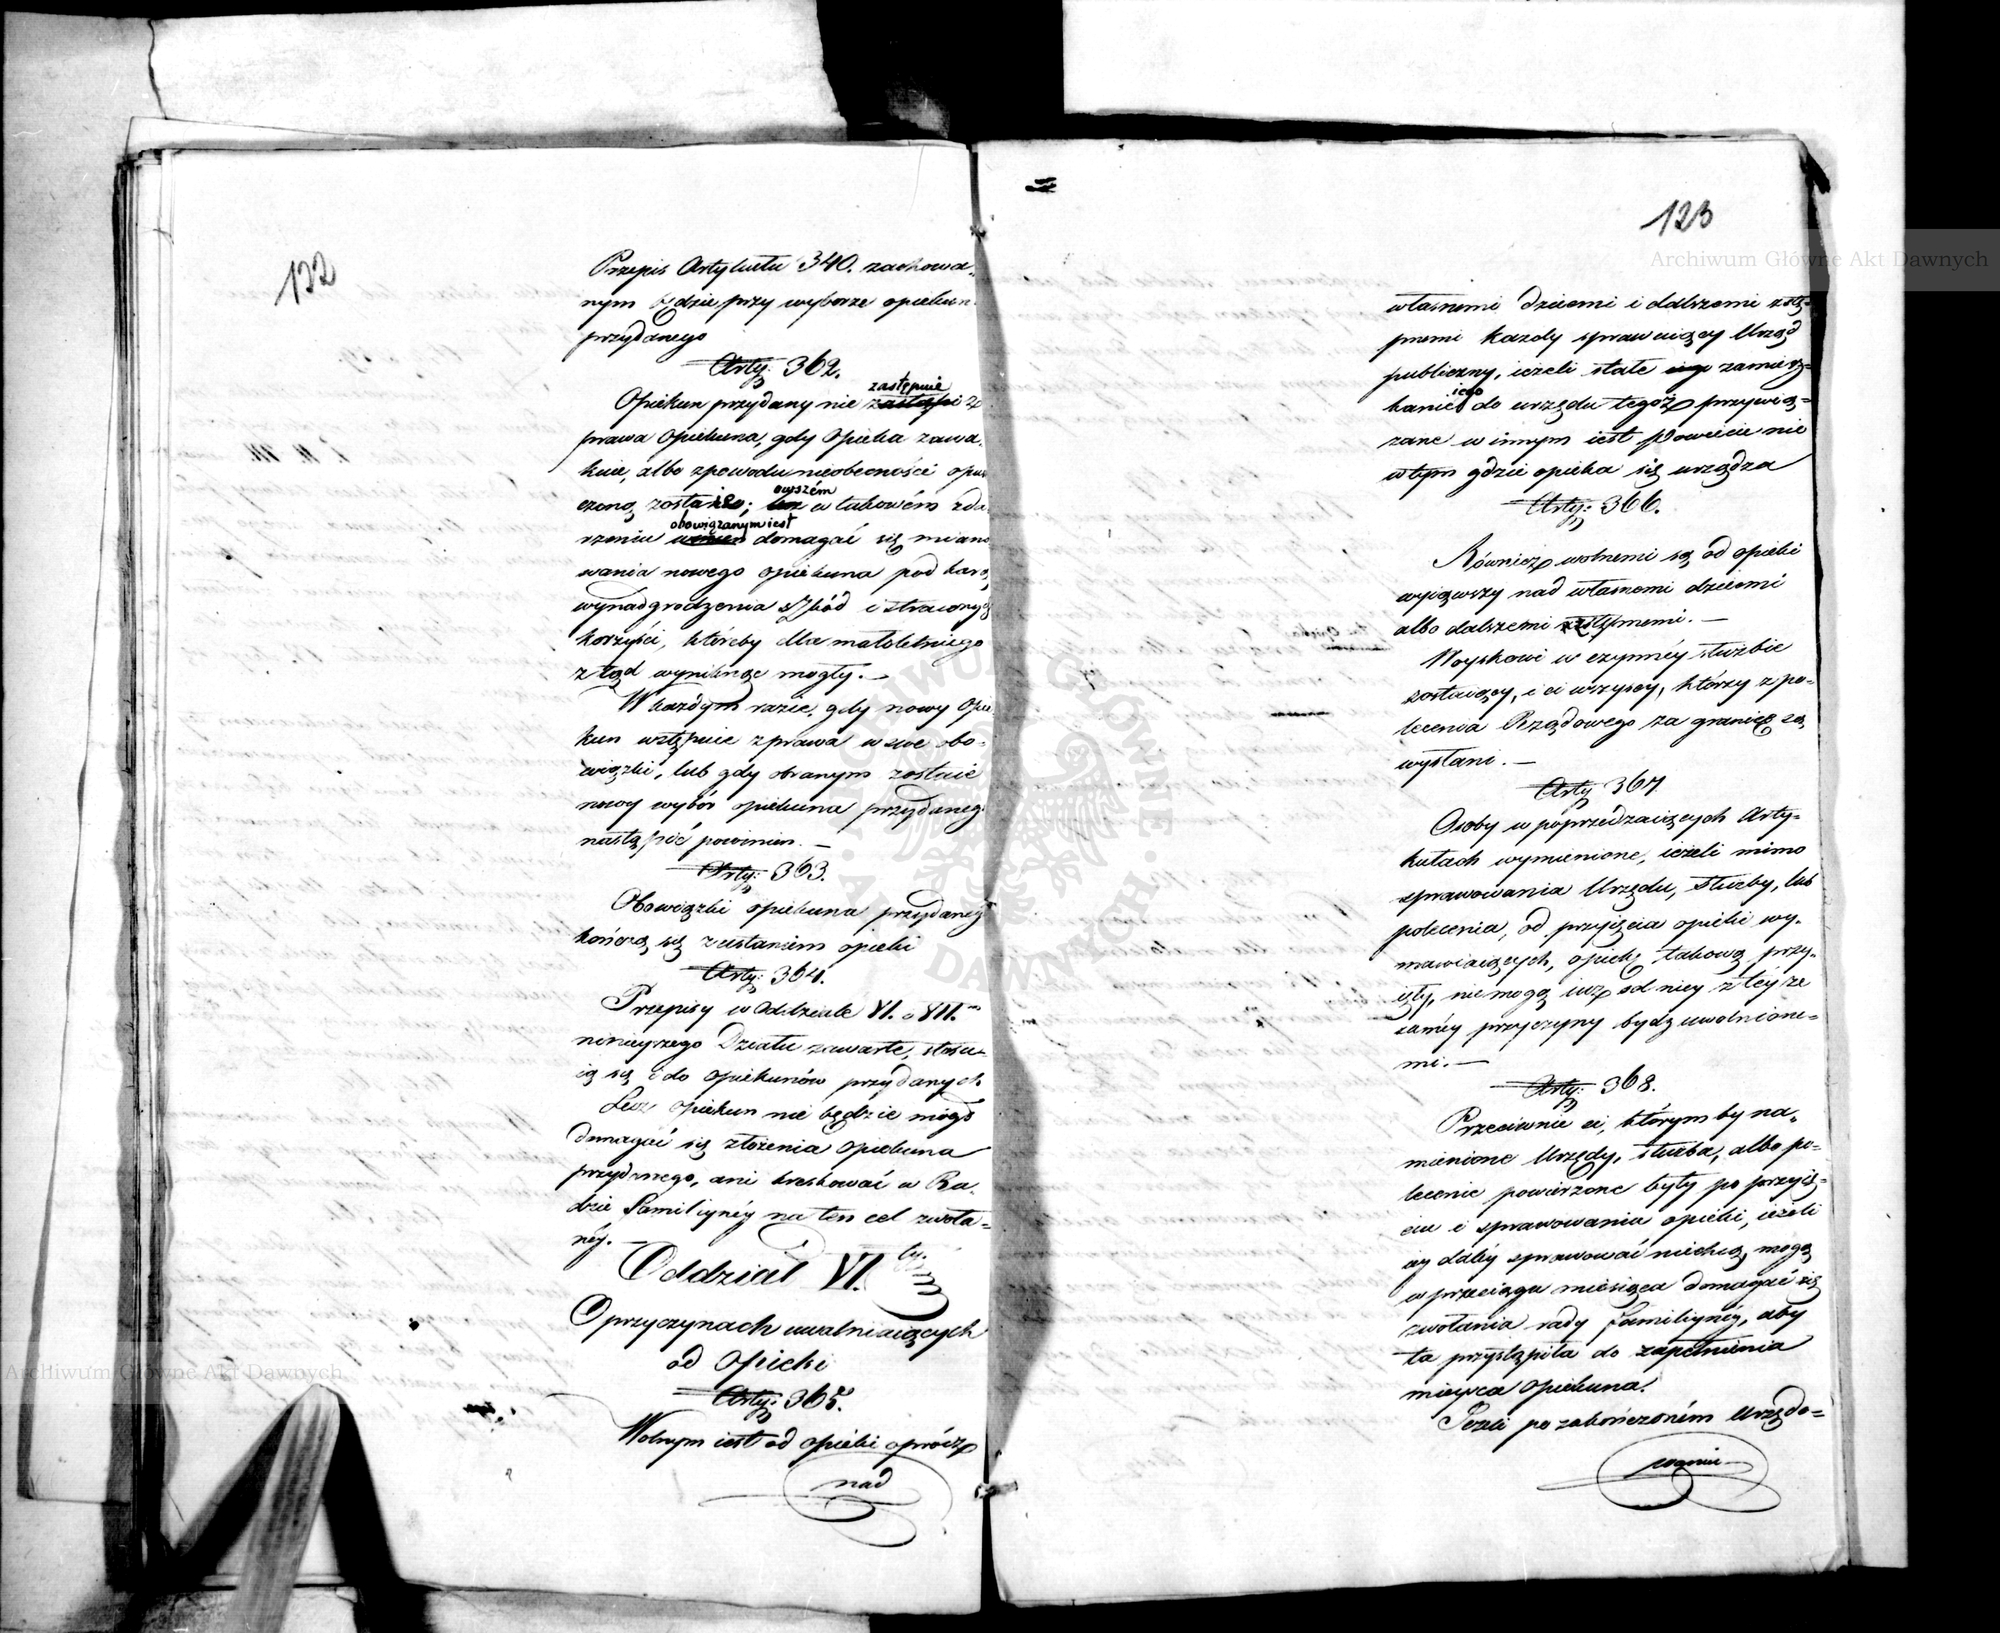 122
Przepis Artykułu 340. zachowa-
nym będzie przy wyborze opiekun
przydanego
Arty: 362.
zastępuie
Opiekun przydany nie zastąpi z
prawa Opiekuna, gdy Opieka zawa-
kuie, albo z powodu nieobecności opu
czoną zostanie; owszém w takowém zda-
obowiązanym iest
rzeniu winien domagać się miano
wania nowego opiekuna pod karą
wynadgrodzenia szkód i straconych
korzyści, któreby dla małoletniego
z tąd wyniknąć mogły. —
W każdym razie, gdy nowy Opie
kun wstępuie z prawa w swe obo-
wiązki, lub gdy obranym zostaie
nowy wybór opiekuna przydaneg
nastąpić powinien. —
Arty: 363.
Obowiązki opiekuna przydaneg
kończą się z ustaniem opieki
Arty: 364.
Przepisy w Oddziale VI. i VII.
ninieyszego Działu zawarte, stosu-
ią się i do opiekunów przydanych
Lecz opiekun nie będzie mógł
domagać się złożenia opiekuna
przydanego, ani kreskować w Ra-
dzie Familiynéy na ten cel zwoła-
néy. —
Oddział VI.ty
O przyczynach uwalniaiących
od Opieki
Arty: 365.
Wolnym iest od opieki oprócz
nad
123
własnemi dziećmi i dalszemi zstę-
pnemi każdy sprawuiący Urząd
publiczny, ieżeli stałe iego zamiesz-
iego
kanie do urzędu tegoż przywią-
zane w innym iest Powiecie nie
w tym gdzie opieka się urządza
Arty: 366.
Również wolnemi są od opieki
wyiąwszy nad własnemi dziećmi
albo dalszemi zstępnemi. —
Woyskowi w czynnéy służbie
zostaiący, i ci wszyscy, którzy z po-
lecenia Rządowego za granicę są
wysłani. —
Arty 367.
Osoby w poprzedzaiących Arty-
kułach wymienione, ieżeli mimo
sprawowania Urzędu, służby, lub
polecenia, od przyięcia opieki wy-
mawiaiących, opiekę takową przy-
ięły, nie mogą iuż od niey z téyże
saméy przyczyny bydź uwolnione-
mi. —
Arty: 368.
Przeciwnie ci, którym by na-
mienione Urzędy, służba, albo po-
lecenie powierzone były po przyię-
ciu i sprawowania opieki, ieżeli
iéy daléy sprawować niechcą, mogą
w przeciągu miesiąca domagać się
zwołania rady familiynéy, aby
ta przystąpiła do zapełnienia
mieysca Opiekuna.
Jeżeli po zakończoném Urzędo-
waniu
Archiwum Główne Akt Dawnych
Archiwum Główne Akt Dawnych
ARCHIWUM GŁÓWNE AKT DAWNYCH